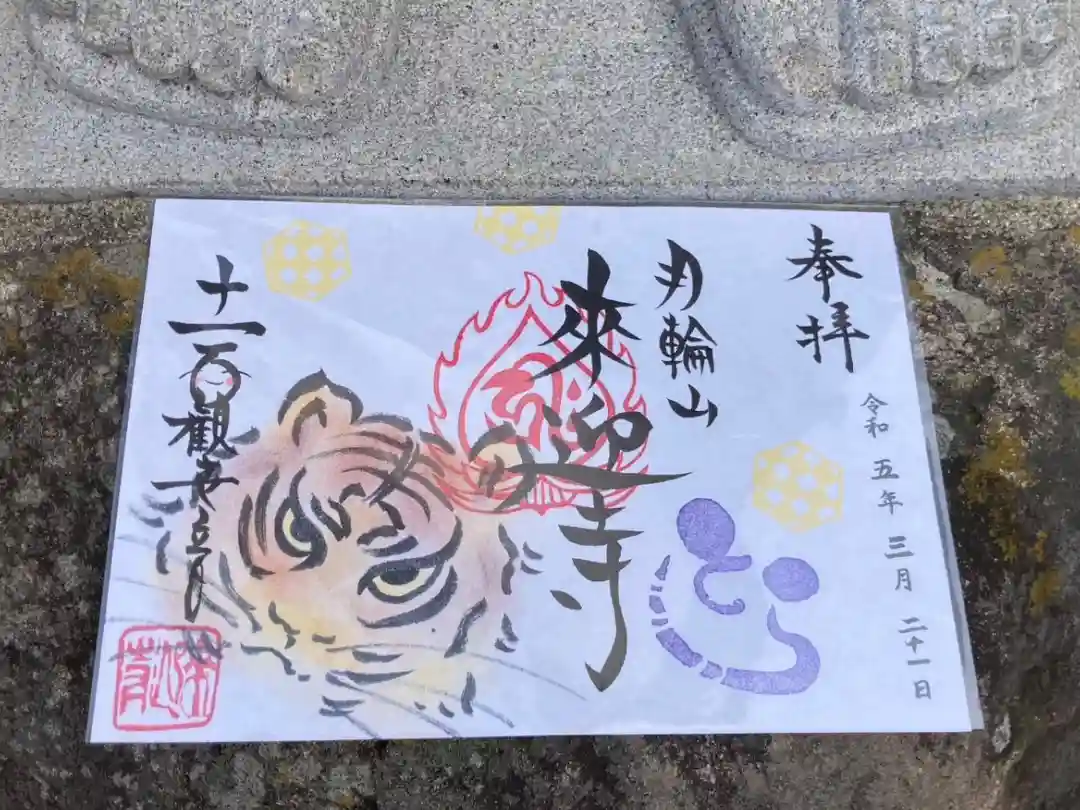 奉拝
令和 五年 三月 二十一日
月輪山
來迎寺
十一面観世音